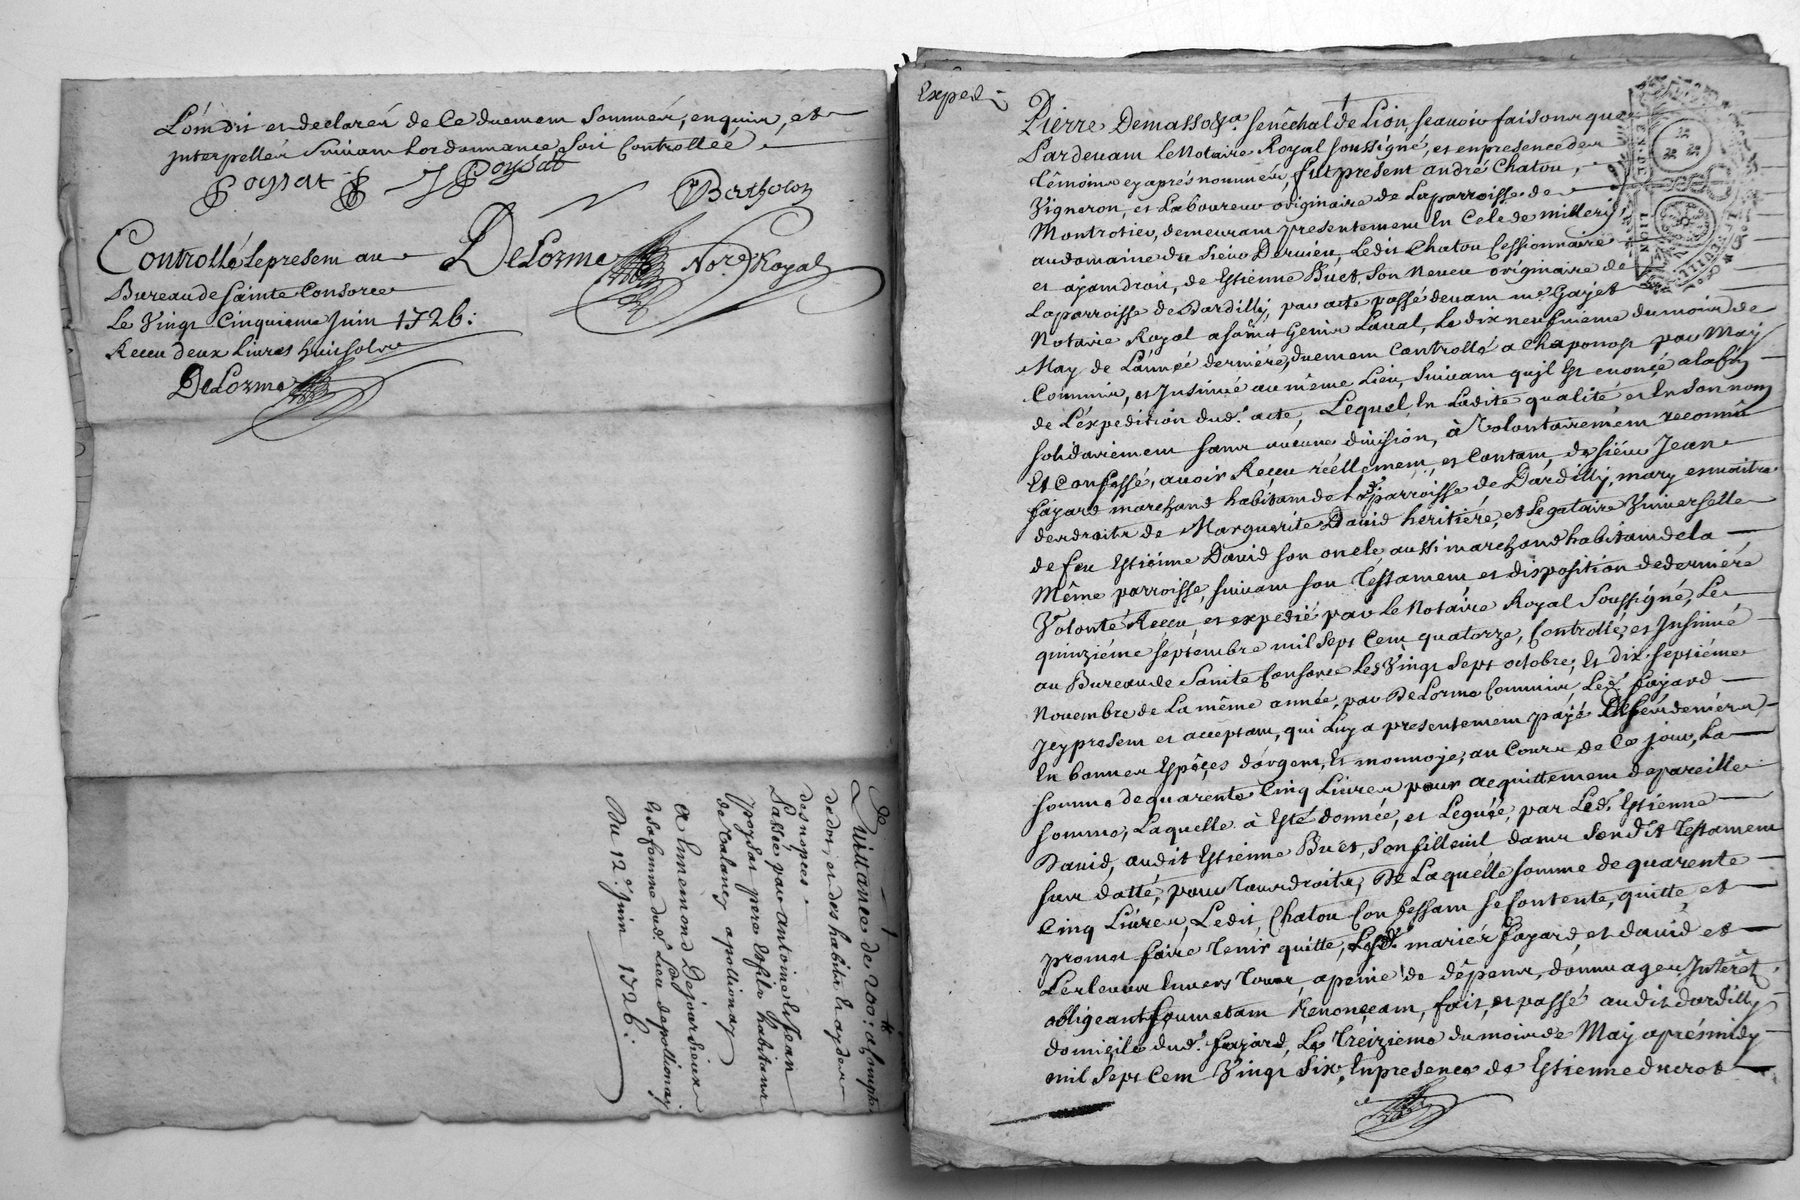 L'ont dit et declaré de ce duement sommés, enquis, et
interpellés suivant lordonnance soit Controllée
Poysat J Poysat
Bertholon
DeLorme No.re Royal
Controllé le present au
Bureau de Sainte Consorce
Le Vingt Cinquieme Juin 1726:
Receu deux Livres huit sols
DeLorme
Quittance de 200:# a Compte
de dot, et des habits et
des nopces
Passée par Antoine et Jean
poysat pere et fils habitans
de apollionay
A Ennemond Dejoursieux
et sa femme dud. Lieu depollionay
Du 12.e Juin 1726:
Exped.
Pierre Demasso &.a senêchal de Lion scavoir faisons que
Pardevant le Notaire Royal soussigné, et en presence des
têmoins cy aprés nommés, fut present andré Chatou,
Vigneron, et Laboureur originaire de Laparroisse de
Montrotier, demeurant presentement En Cele de millery
au domaine du sieur Dervieu, Ledit Chatou Cessionnaire
et ayant droit, de Estienne Buet, son Neveu originaire de
Laparroisse de Dardilly, par acte passé devant me Gayet
Notaire Royal a saint Genis Laval, Le dix neufvieme du mois de
May de L'année derniére, duement Controllé a Chaponost par May
Commis, et Insinué au même Lieu, suivant qu'jl Est enoncé a la fin
de L'expedition dud. acte, Lequel, En Ladite qualité et En son nom
solidairement sans aucune division, à Volontairement reconnû
Et Confessé, avoir Receu réellement, et Contant, de sieur Jean
fayard marchand habitant de la parroisse de Dardilly, mary et maitre
des droits de Marguerite David heritiére, et Legataire Universelle
de feu Estienne David son oncle aussi marchand habitant de la
Même parroisse, suivant son Testament et disposition de derniére
Volonté Receu, et expedié par Le Notaire Royal Soussigné, Le
quinziéme septembre mil sept Cent quatorze, Controllé, et Insinué
au Bureau de Sainte Consorce Les Vingt sept octobre, Et Dix septiéme
Novembre de La même année, par DeLorme Commis, Led. fayard
Jcy present et acceptant, qui Luy a presentement payé de ses deniers,
En bonnes Espêçes d'argent, Et monnoye, au Cours de Ce jour, La
somme de quarente Cinq Livres pour acquittement de pareille
somme, Laquelle à Esté donnée, et Leguée, par Led. Estienne
David, audit Estienne Buet, son filleuil dans son dit Testament
sus datté, pour tous droits, De Laquelle somme de quarente
Cinq Livres, Ledit Chatou Confessant se Contente, quitte, et
promet faire tenir quitte, Lesd. mariés fayard, et david et
Les leurs Envers tous, a peine de dêpens, dommages, Interêts,
obligeant soumetant Renonçeant, fait, et passé audit dardilly
domiçile dud. fayard, Le Treiziéme du mois de May aprés midy
mil sept Cent Vingt Six, En presence de Estienne ducrot
GEN. DE
LION